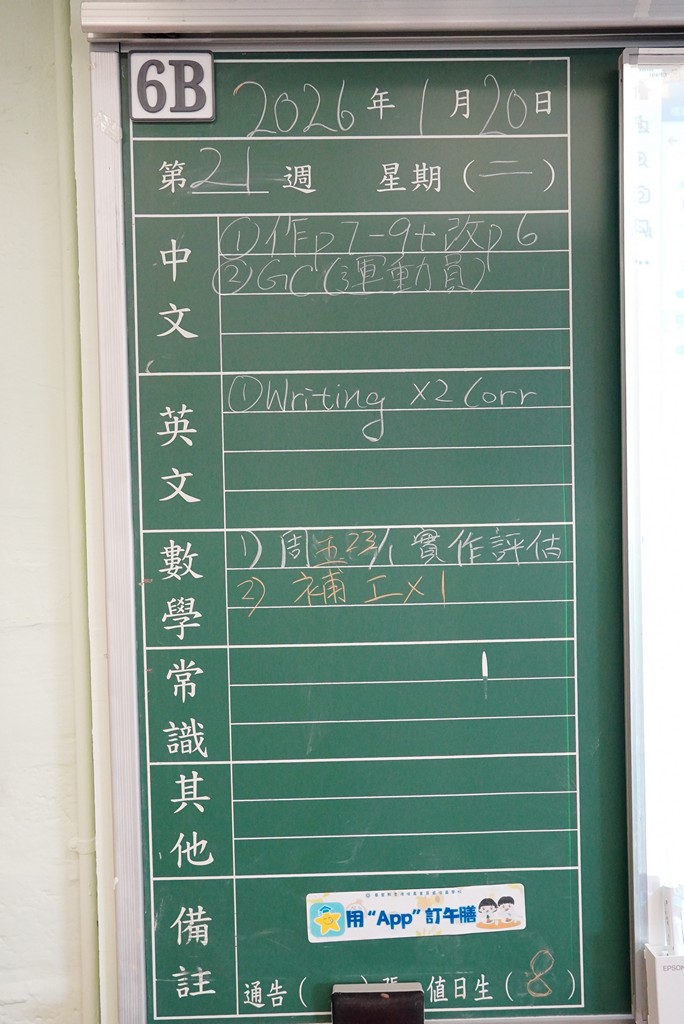 6B
2026年1月20日
第21週 星期(二)
中文
①作p7-9+改p6
②GC(運動員)
英文
①Writing X2 Corr
數學
1) 周五23/1 實作評估
2) 補工X1
常識
其他
備註
用“App”訂午膳
通告( ) 值日生(8)
EPSON